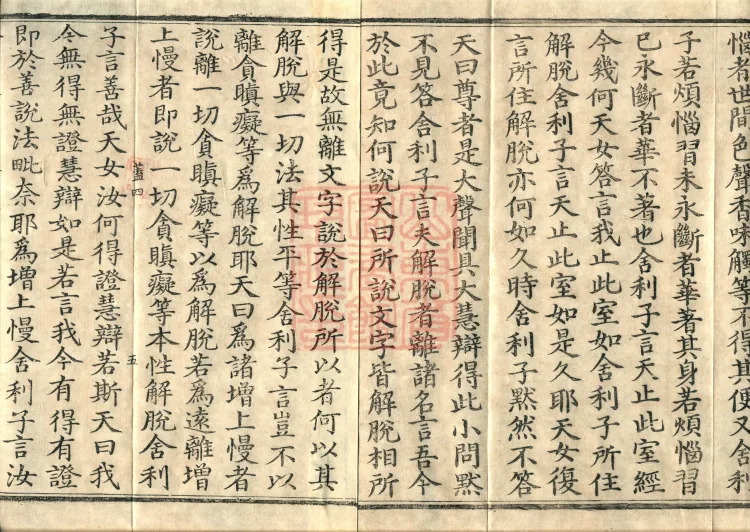 惱者世間色聲香味觸等不得其便又舍利
子若煩惱習未永斷者華著其身若煩惱習
已永斷者華不著也舍利子言天止此室經
今幾何天女答言我止此室如舍利子所住
解脫舍利子言天止此室如是久耶天女復
言所住解脫亦何如久時舍利子默然不答
天曰尊者是大聲聞具大慧辯得此小問默
不見答舍利子言夫解脫者離諸名言吾今
於此竟知何說天曰所說文字皆解脫相所
得是故無離文字說於解脫所以者何以其
解脫與一切法其性平等舍利子言豈不以
離貪瞋癡等爲解脫耶天曰爲諸增上慢者
說離一切貪瞋癡等以爲解脫若爲遠離增
上慢者即說一切貪瞋癡等本性解脫舍利
四
五
子言善哉天女汝何得證慧辯若斯天曰我
今無得無證慧辯如是若言我今有得有證
即於善說法毗奈耶爲增上慢舍利子言汝